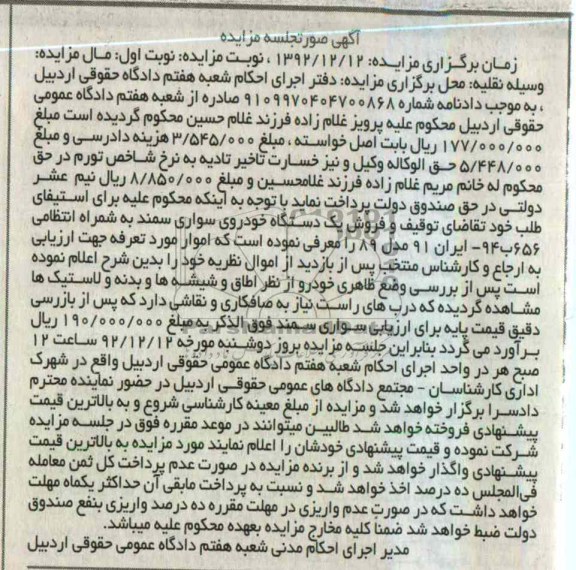 آگهی صورتجلسه مزایده
زمان برگزاری مزایده: ۱۳۹۲/۱۲/۱۲ ، نوبت مزایده: نوبت اول: مال مزایده:
وسیله نقلیه: محل برگزاری مزایده: دفتر اجرای احکام شعبه هفتم دادگاه حقوقی اردبیل
، به موجب دادنامه شماره ۹۱۰۹۹۷۰۴۰۴۷۰۰۸۶۸ صادره از شعبه هفتم دادگاه عمومی
حقوقی اردبیل محکوم علیه پرویز غلام زاده فرزند غلام حسین محکوم گردیده است مبلغ
۱۷۷/۰۰۰/۰۰۰ ریال بابت اصل خواسته ، مبلغ ۳/۵۴۵/۰۰۰ هزینه دادرسی و مبلغ
۵/۴۴۸/۰۰۰ حق الوکاله وکیل و نیز خسارت تاخیر تادیه به نرخ شاخص تورم در حق
محکوم له خانم مریم غلام زاده فرزند غلامحسین و مبلغ ۸/۸۵۰/۰۰۰ ریال نیم عشر
دولتی در حق صندوق دولت پرداخت نماید با توجه به آینکه محکوم علیه برای استیفای
طلب خود تقاضای توقیف و فروش یک دستگاه خودروی سواری سمند به شمراه انتظامی
۶۵۶ب۹۴- ایران ۹۱ مدل ۸۹ را معرفی نموده است که اموار مورد تعرفه جهت ارزیابی
به ارجاع و کارشناس منتخب پس از بازدید از اموال نظریه خود را بدین شرح اعلام نموده
است پس از بررسی وضع ظاهری خودرو از نظر اطاق و شیشه ها و بدنه و لاستیک ها
مشاهده گردیده که درب های راست نیاز به صافکاری و نقاشی دارد که پس از بازرسی
دقیق قیمت پایه برای ارزیابی سواری سمند فوق الذکر به مبلغ ۱۹۰/۰۰۰/۰۰۰ ریال
برآورد می گردد بنابراین جلسه مزایده بروز دوشنبه مورخه ۹۲/۱۲/۱۲ ساعت ۱۲
صبح هر در واحد اجرای احکام شعبه هفتم دادگاه عمومی حقوقی اردبیل واقع در شهرک
اداری کارشناسان - مجتمع دادگاه های عمومی حقوقی اردبیل در حضور نماینده محترم
دادسرا برگزار خواهد شد و مزایده از مبلغ معینه کارشناسی شروع و به بالاترین قیمت
پیشنهادی فروخته خواهد شد طالبین میتوانند در موعد مقرره فوق در جلسه مزایده
شرکت نموده و قیمت پیشنهادی خودشان را اعلام نمایند مورد مزایده به بالاترین قیمت
پیشنهادی واگذار خواهد شد و از برنده مزایده در صورت عدم پرداخت کل ثمن معامله
فی‌المجلس ده درصد اخذ خواهد شد و نسبت به پرداخت مابقی آن حداکثر یکماه مهلت
خواهد داشت که در صورت عدم واریزی در مهلت مقرره ده درصد واریزی بنفع صندوق
دولت ضبط خواهد شد ضمنا کلیه مخارج مزایده بعهده محکوم علیه میباشد.
مدیر اجرای احکام مدنی شعبه هفتم دادگاه عمومی حقوقی اردبیل